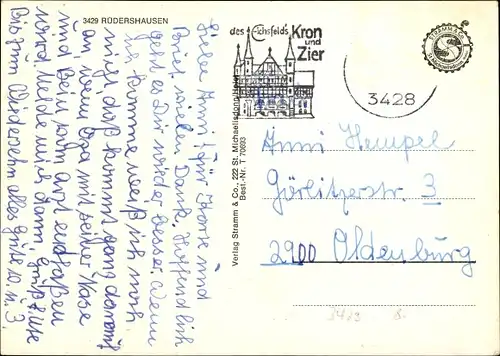 3429 RÜDERSHAUSEN
Liebe Anni! Für Karte und
Brief vielen Dank. Hoffentlich
geht es Dir wieder besser. Wenn
ich komme weiß ich noch
nicht, daß kommt ganz darauf
an, wenn Opa mit seiner Nase
und Bein vom Arzt entlaßen
wird. Melde mich dann. Grüße
Bis zum Wiedersehn alles gute
des Eichsfelds Kron
und
Zier
3428
STRAMM & CO.
Verlag Stramm & Co., 222 St. Michaelisdonn/Holst.
Best.-Nr. T 70903
Anni Hempel
Görlitzerstr. 3
2900 Oldenburg
3429 8.